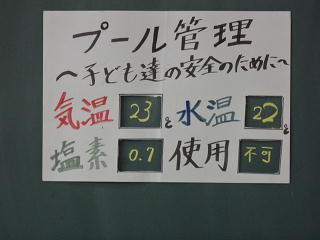 プール管理
〜子ども達の安全のために〜
気温 23℃ 水温 22℃
塩素 0.7 使用 不可